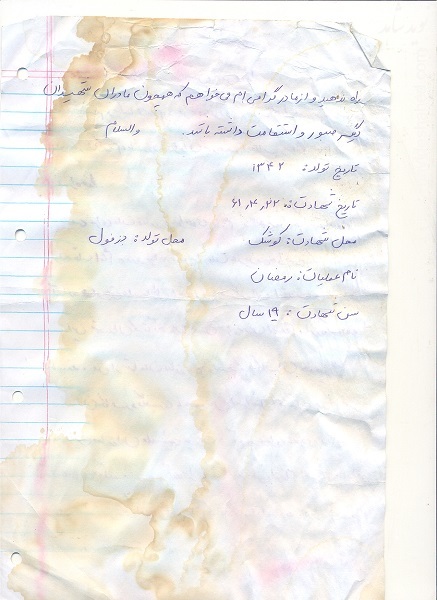 راه ندهید و از مادر گرامی ام می خواهم که همچون مادران شهیدان
دیگر صبور و استقامت داشته باشد. والسلام
تاریخ تولد: ۱۳۴۲
تاریخ شهادت: ۶۱,۴,۲۲
محل شهادت: کوشک محل تولد: دزفول
نام عملیات: رمضان
سن شهادت: ۱۹ سال